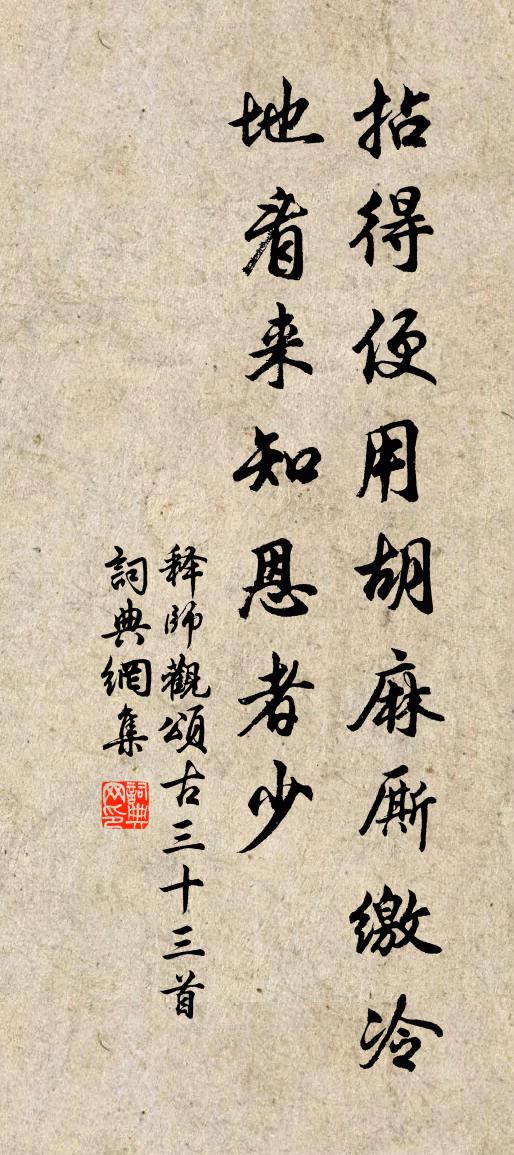 拈得便用胡麻厮繳冷
地看来知恩者少
释師觀頌古三十三首
詞典網集
詞典网印